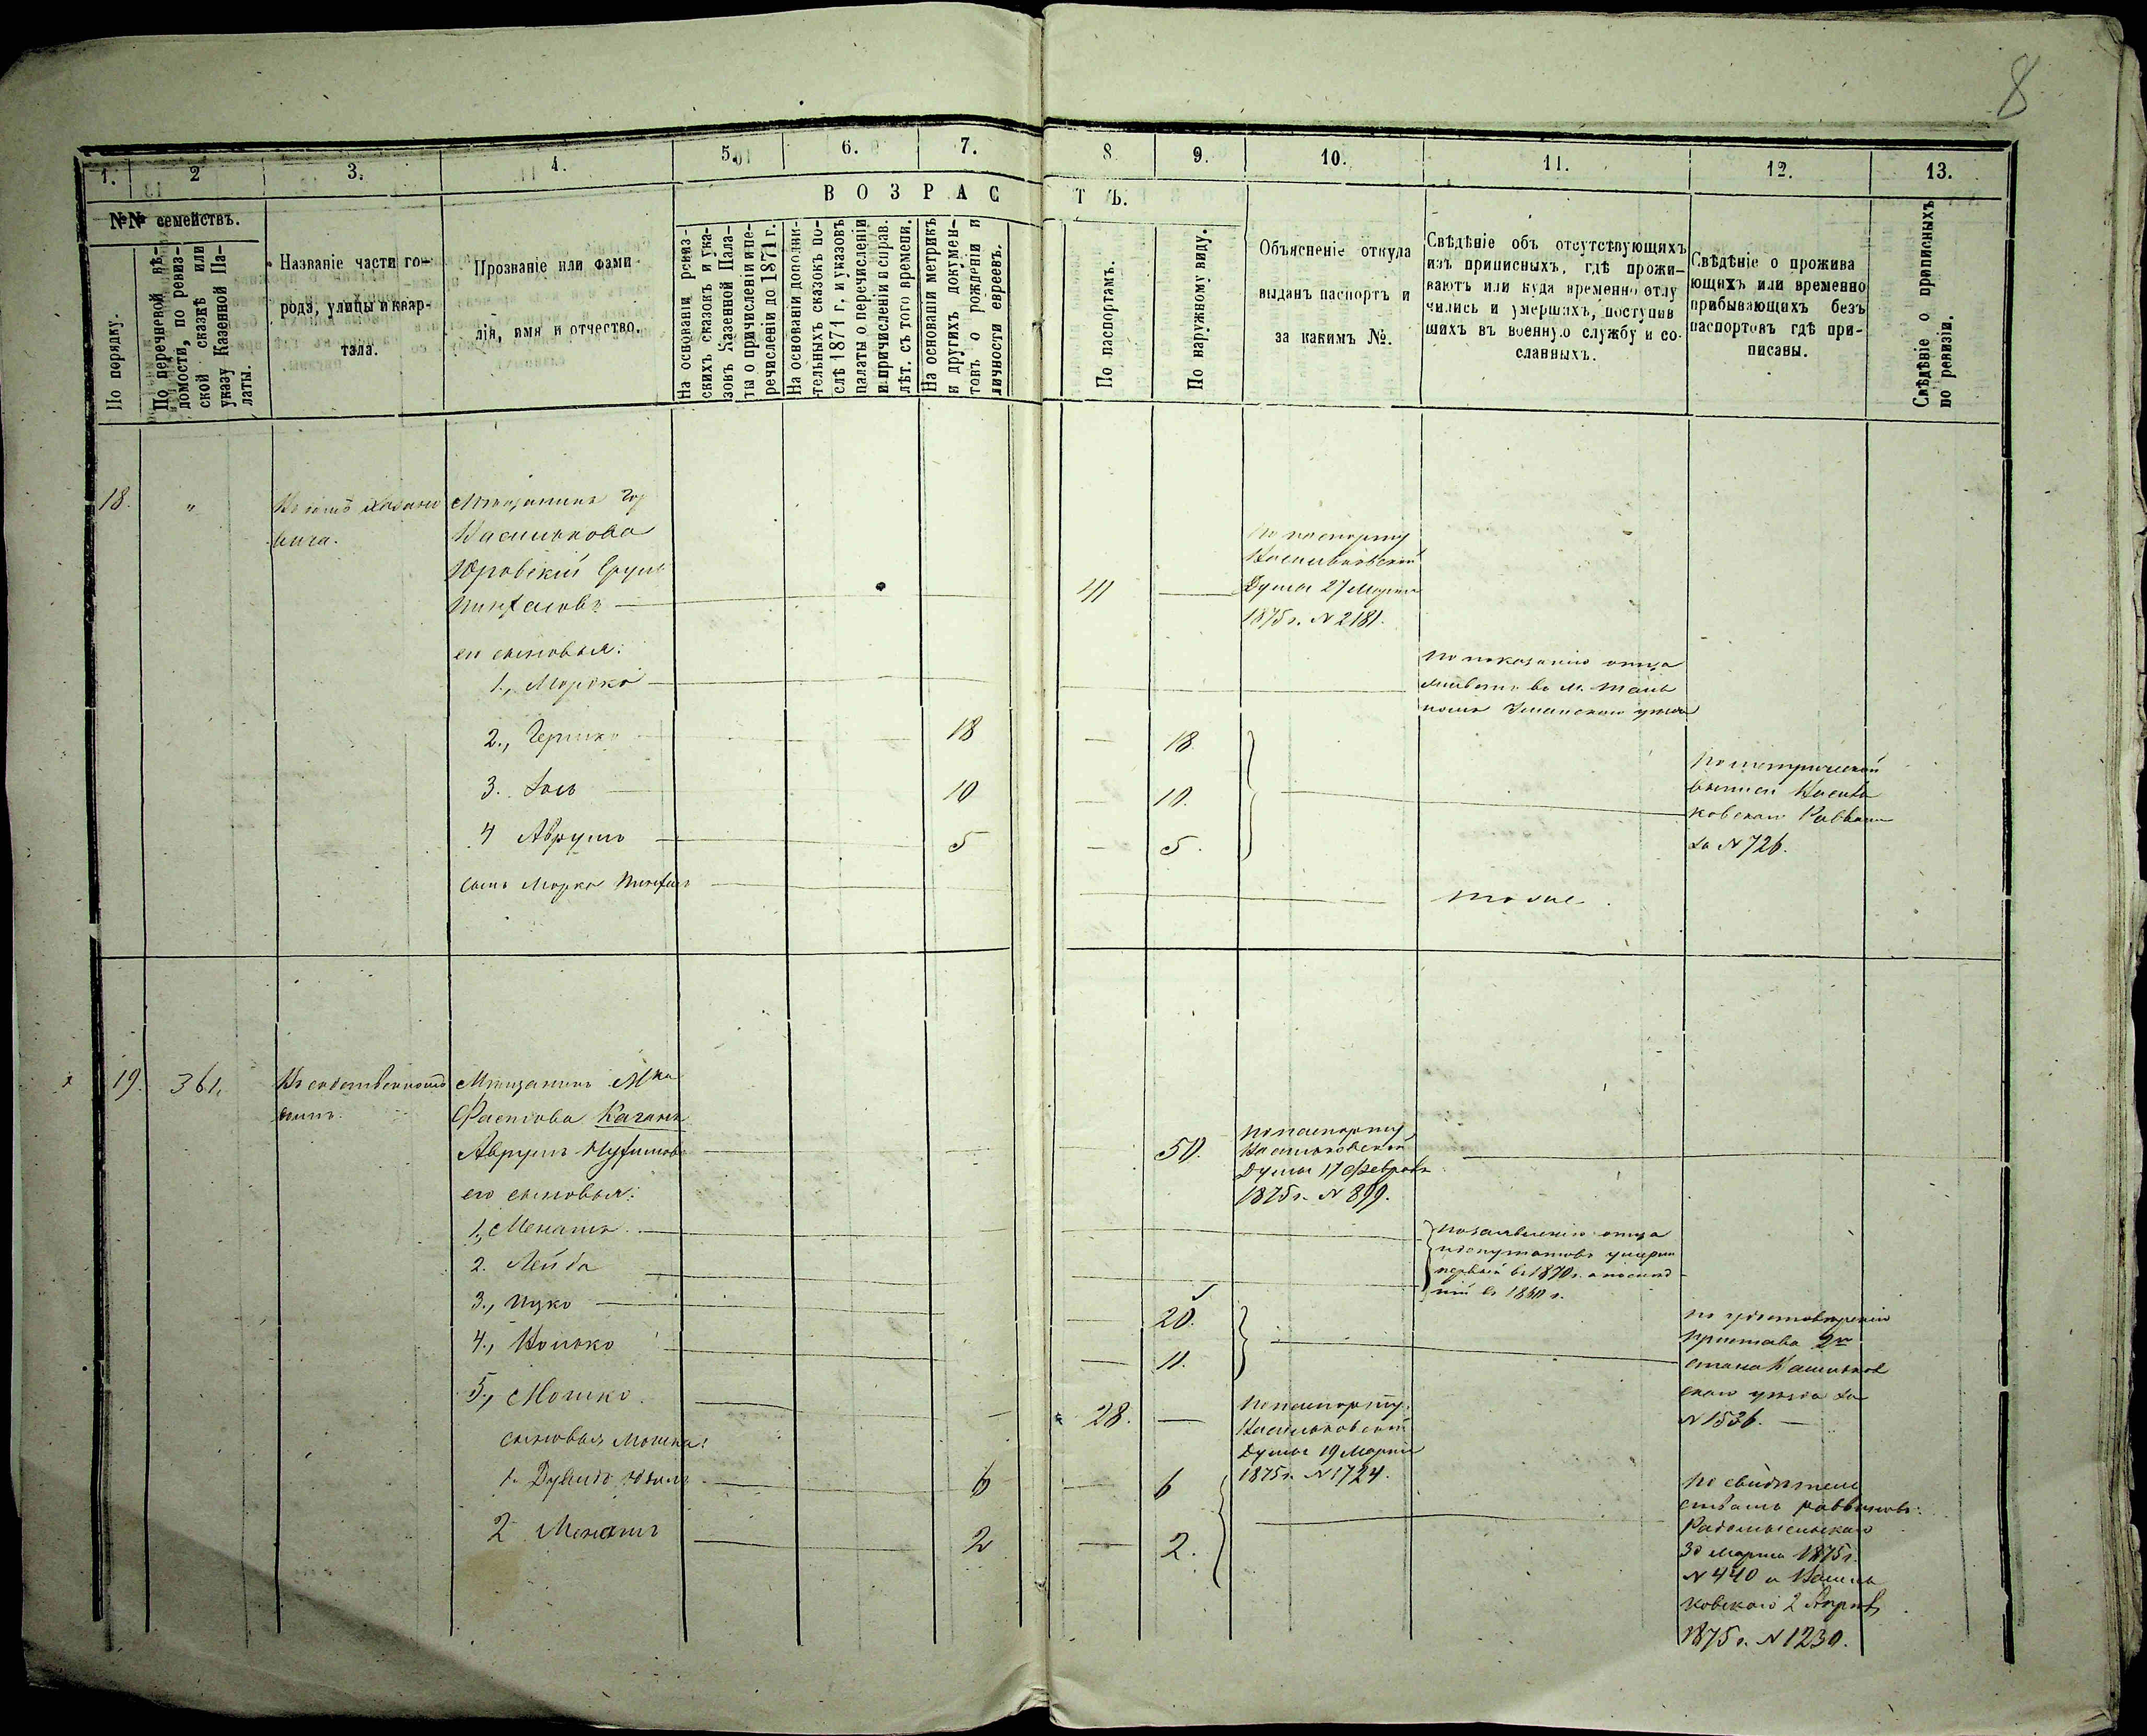 8
1.
2
3.
4.
5.
6.
7.
8
9.
10.
11.
12.
13.
ВОЗРАСТЪ.
№№ семействъ.
По порядку.
По перечневой вѣ-
домости, по ревиз-
ской сказкѣ или
указу Казенной Па-
латы.
Названіе части го-
рода, улицы и квар-
тала.
Прозваніе или фами-
лія, имя и отчество.
На основаніи ревиз-
скихъ сказокъ и ука-
зовъ Казенной Пала-
ты о причисленіи и пе-
речисленіи до 1871 г.
На основаніи дополни-
тельныхъ сказокъ по-
слѣ 1871 г. и указовъ
палаты о перечисленіи
и причисленіи и справ.
лѣт. съ того времени.
На основаніи метрикъ
и другихъ докумен-
товъ о рожденіи и
личности евреевъ.
По паспортамъ.
По наружному виду.
Объясненіе откуда
выданъ паспортъ и
за какимъ №.
Свѣдѣніе объ отсутствующихъ
изъ приписныхъ, гдѣ прожи-
ваютъ или куда временно отлу
чились и умершихъ, поступив
шихъ въ военную службу и со-
сланныхъ.
Свѣдѣніе о прожива
ющихъ или временно
прибывающихъ безъ
паспортовъ гдѣ при-
писаны.
Свѣдѣніе о приписныхъ
по ревизіи.
18.
"
Мѣщанинъ гор
Василькова
Юровскій Сруль
Пинхасовъ
41
По паспорту
Васильковской
Думы 27 Марта
1875 г. N 2181.
его сыновья:
1., Мордко
По показанію отца
живетъ въ м. Таль
номъ Уманскаго уѣзда
2., Гершко
18
18.
3. Іось
10
10.
4 Аврумъ
5
5.
По метрической
выписи Василь
ковскаго Раввина
за N 726.
сынъ Мордка Пинхасъ
тоже.
19.
361.
Въ собственномъ
домѣ.
Мѣщанинъ м-ка
Фастова Каганъ
Аврумъ
50.
По паспорту
Васильковской
Думы 17 Февраля
1875 г. N 899.
его сыновья:
1, Менашъ
2. Лейба
по заявленію отца
и депутатовъ умерли
первый въ 1870 г. а послѣд
ній въ 1860 г.
3., Ицко
20.
4., Іосько
11.
по удостовѣренію
пристава 2го
стана Васильков
скаго уѣзда за
N 1536.
5., Мошко.
28.
По паспорту
Васильковской
Думы 19 Марта
1875 г. N 1724.
сыновья Мошка:
1. Дувидъ
6
6
2 Менашъ
2
2.
По свидѣтель
ствамъ раввиновъ:
Радомысльскаго
30 Марта 1875 г.
N 440 и Василь
ковскаго 2 Апрѣля
1875 г. N 1230.